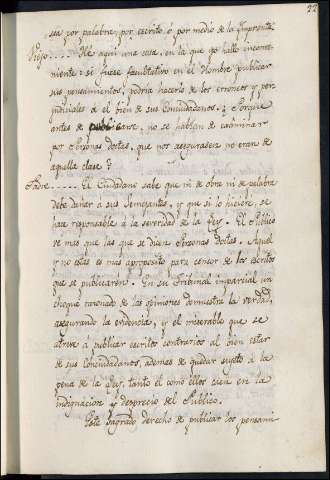 22
sea por palabra, por escrito ó por medio de la Imprenta.
Hijo..... He aqui una cosa, en la que yo hallo inconve-
niente: si fuese facultativo en el Hombre publicar
sus pensamientos, podria hacerlo de los erroneos y per-
judiciales á el bien de sus Conciudadanos. ¿Porque
antes de publicarse, no se habian de examinar
por Personas doctas, que nos asegurasen no eran de
aquella clase?
Padre..... El Ciudadano sabe que ni de obra ni de palabra
debe dañar á sus Semejantes, y que si lo hiciere, se
hace responsable á la severidad de la Ley. El Publico
ve mas que las que se dicen Personas doctas. Aquel
y no estas es mas aproposito para censor de los escritos
que se publicaren. En su Tribunal imparcial un
choque razonado de las opiniones demuestra la verdad,
asegurando la evidencia, y el miserable que se
atreve á publicar escritos contrarios al bien estar
de sus conciudadanos, ademas de quedar sujeto á la
pena de la Ley, tanto el como ellos caen en la
indignacion y desprecio del Publico.
Este Sagrado derecho de publicar los pensami-